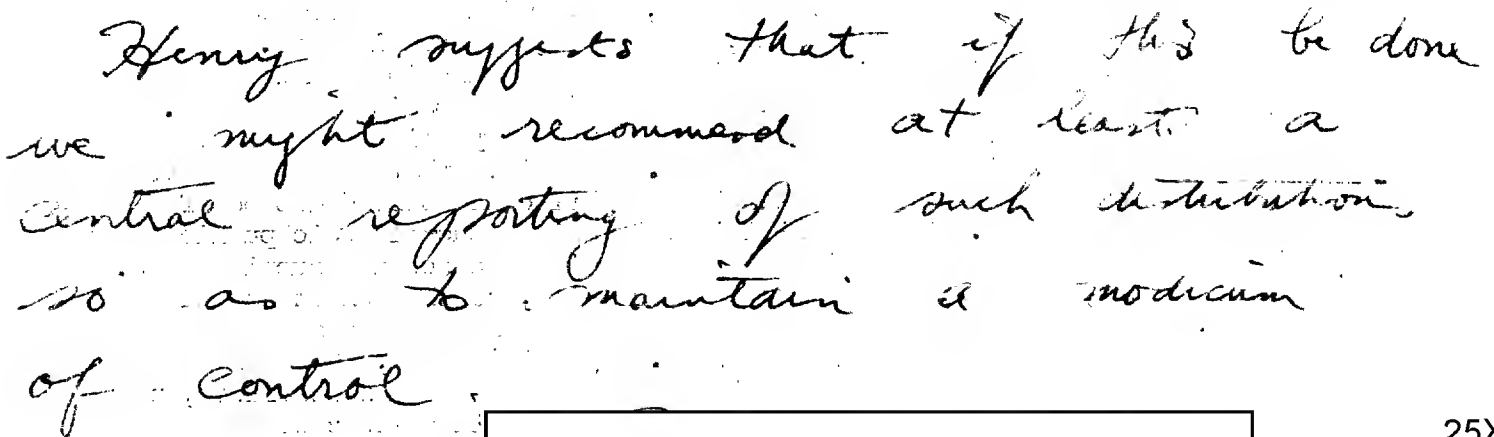 Henry suggests that if this be done
we might recommend at least a
central reporting of such distribution,
so as to maintain a modicum
of control.
25X